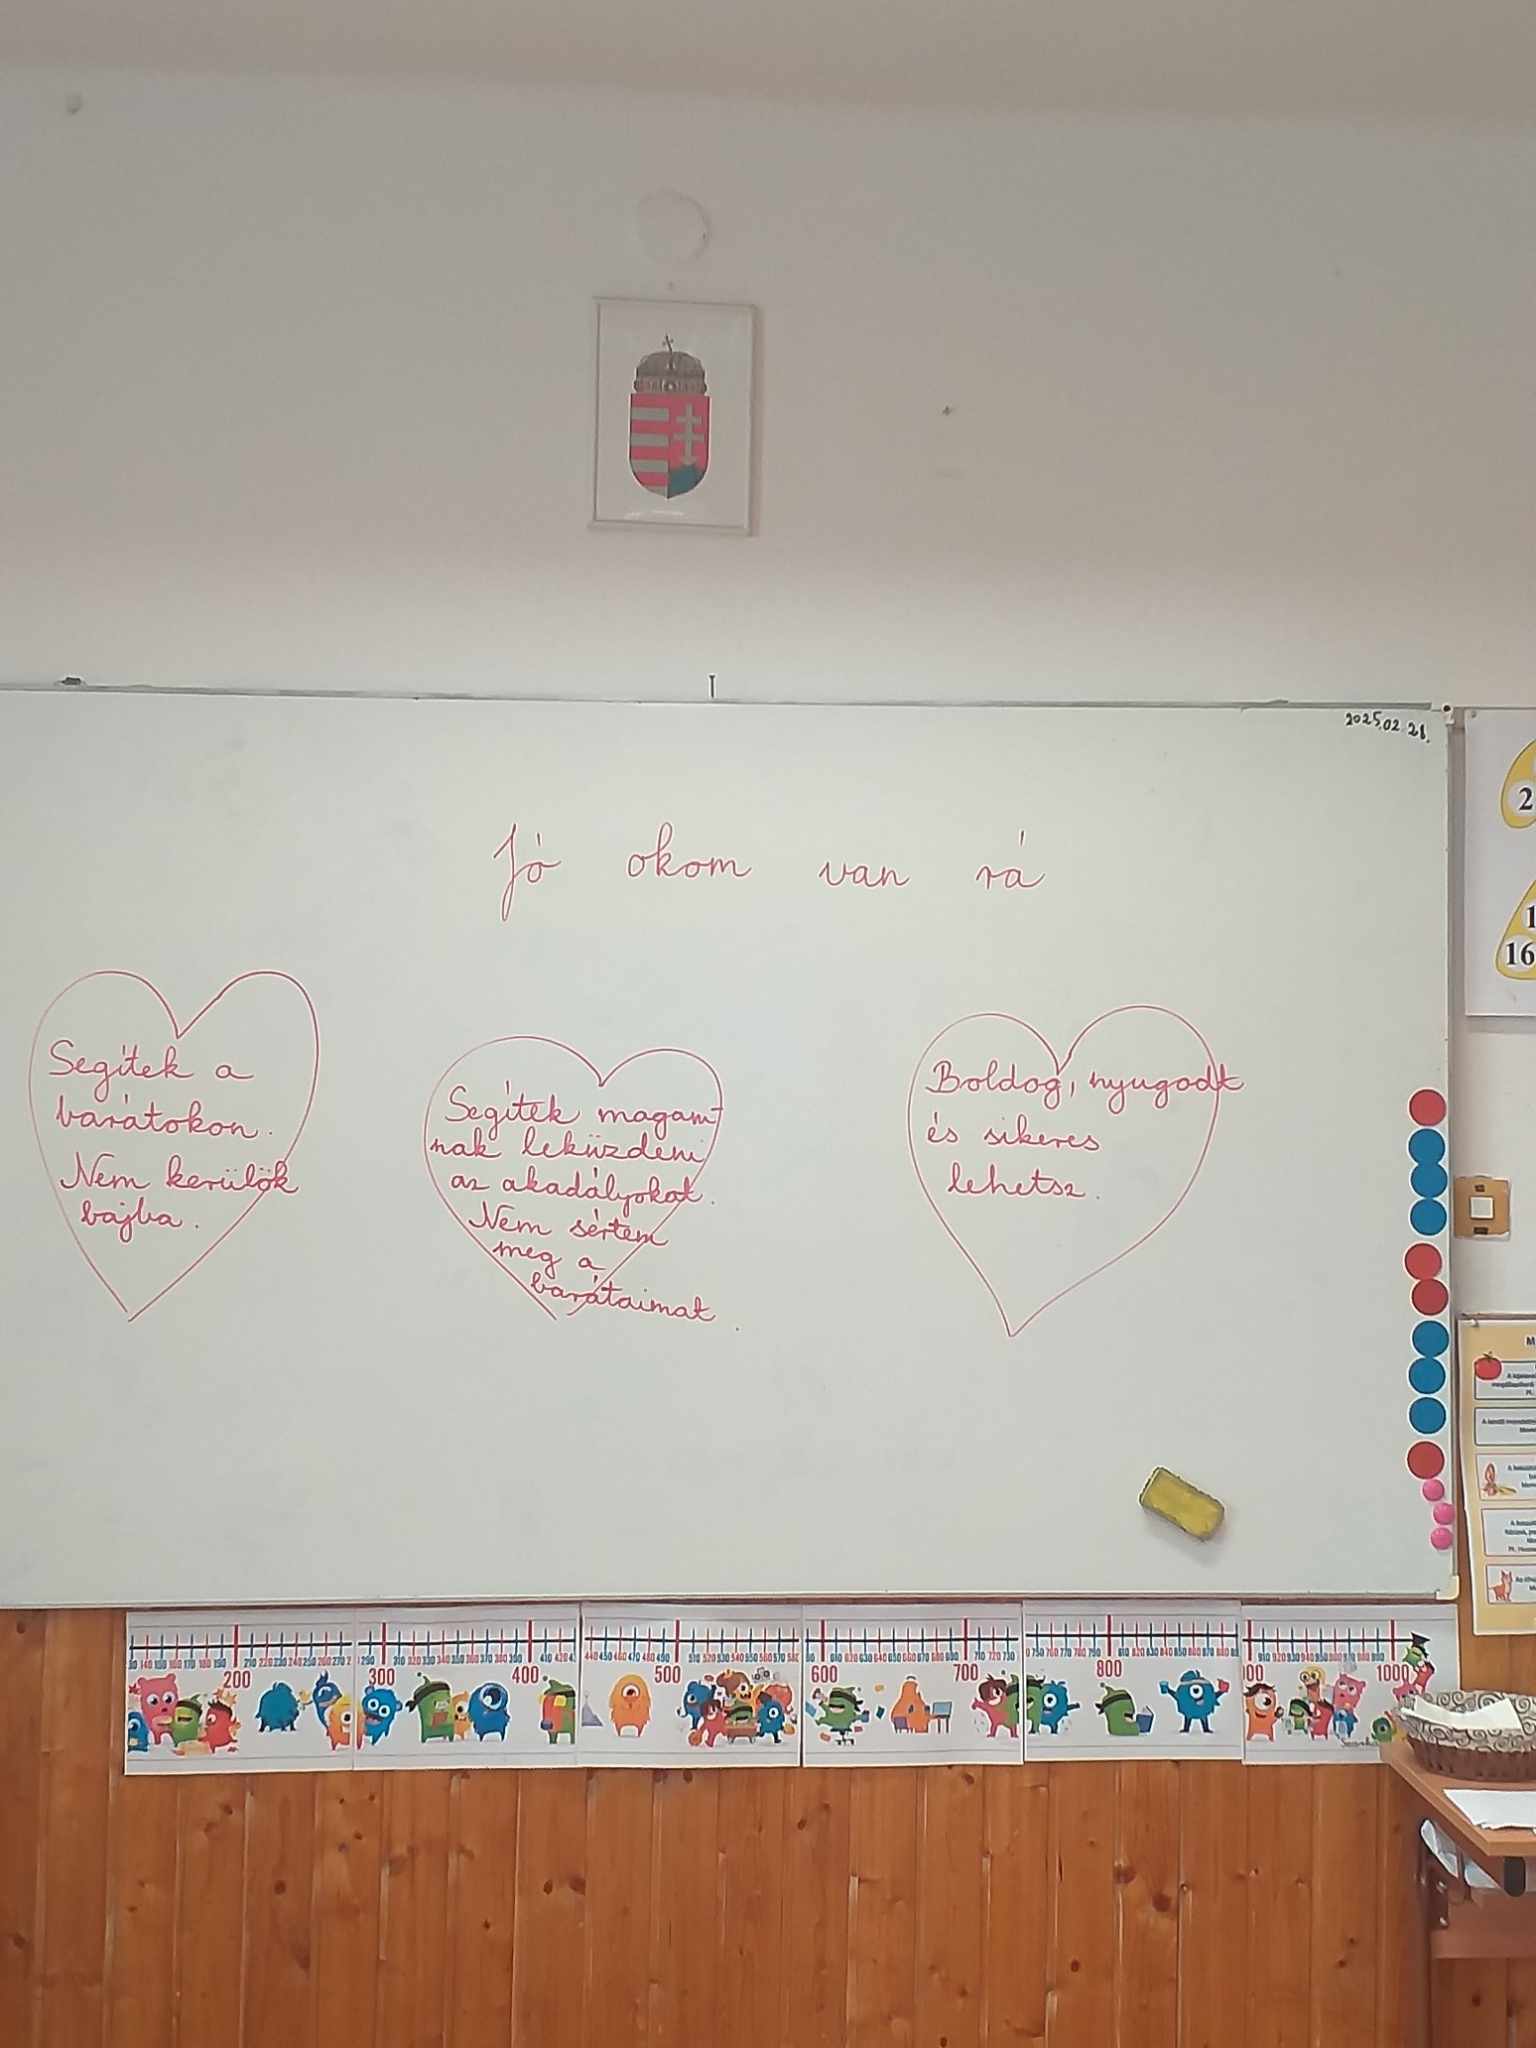 2025.02.21.
Jó okom van rá
Segítek a
barátokon.
Nem kerülök
bajba.
Segítek magam-
nak leküzdeni
az akadályokat.
Nem sértem
meg a
barátaimat.
Boldog, nyugodt
és sikeres
lehetsz.
2
1
16
M
200
300
400
500
600
700
800
1000